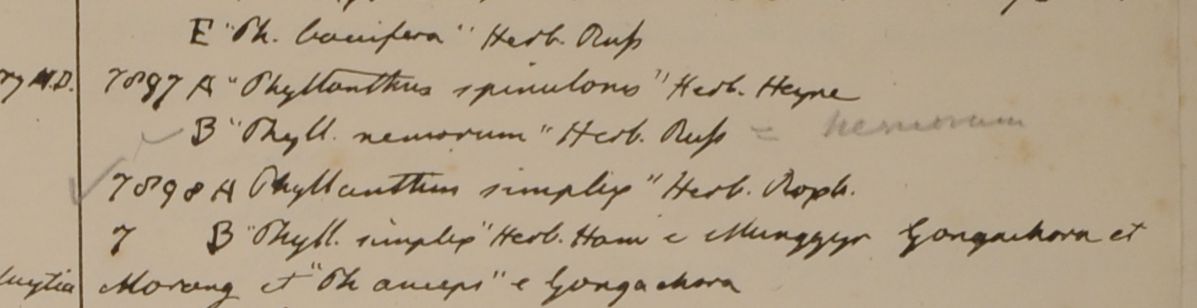 E "Ph. baccifera" Herb. Russ
ry M.D. 7897 A "Phyllanthus spinulosus" Herb. Heyne
B "Phyll. nemorum" Herb. Russ = nemorum
7898 A Phyllanthus simplex" Herb. Roxb.
7 B "Phyll. simplex" Herb. Ham e Mungger Gongachora et
Morang et "Ph anceps" e Gongachora